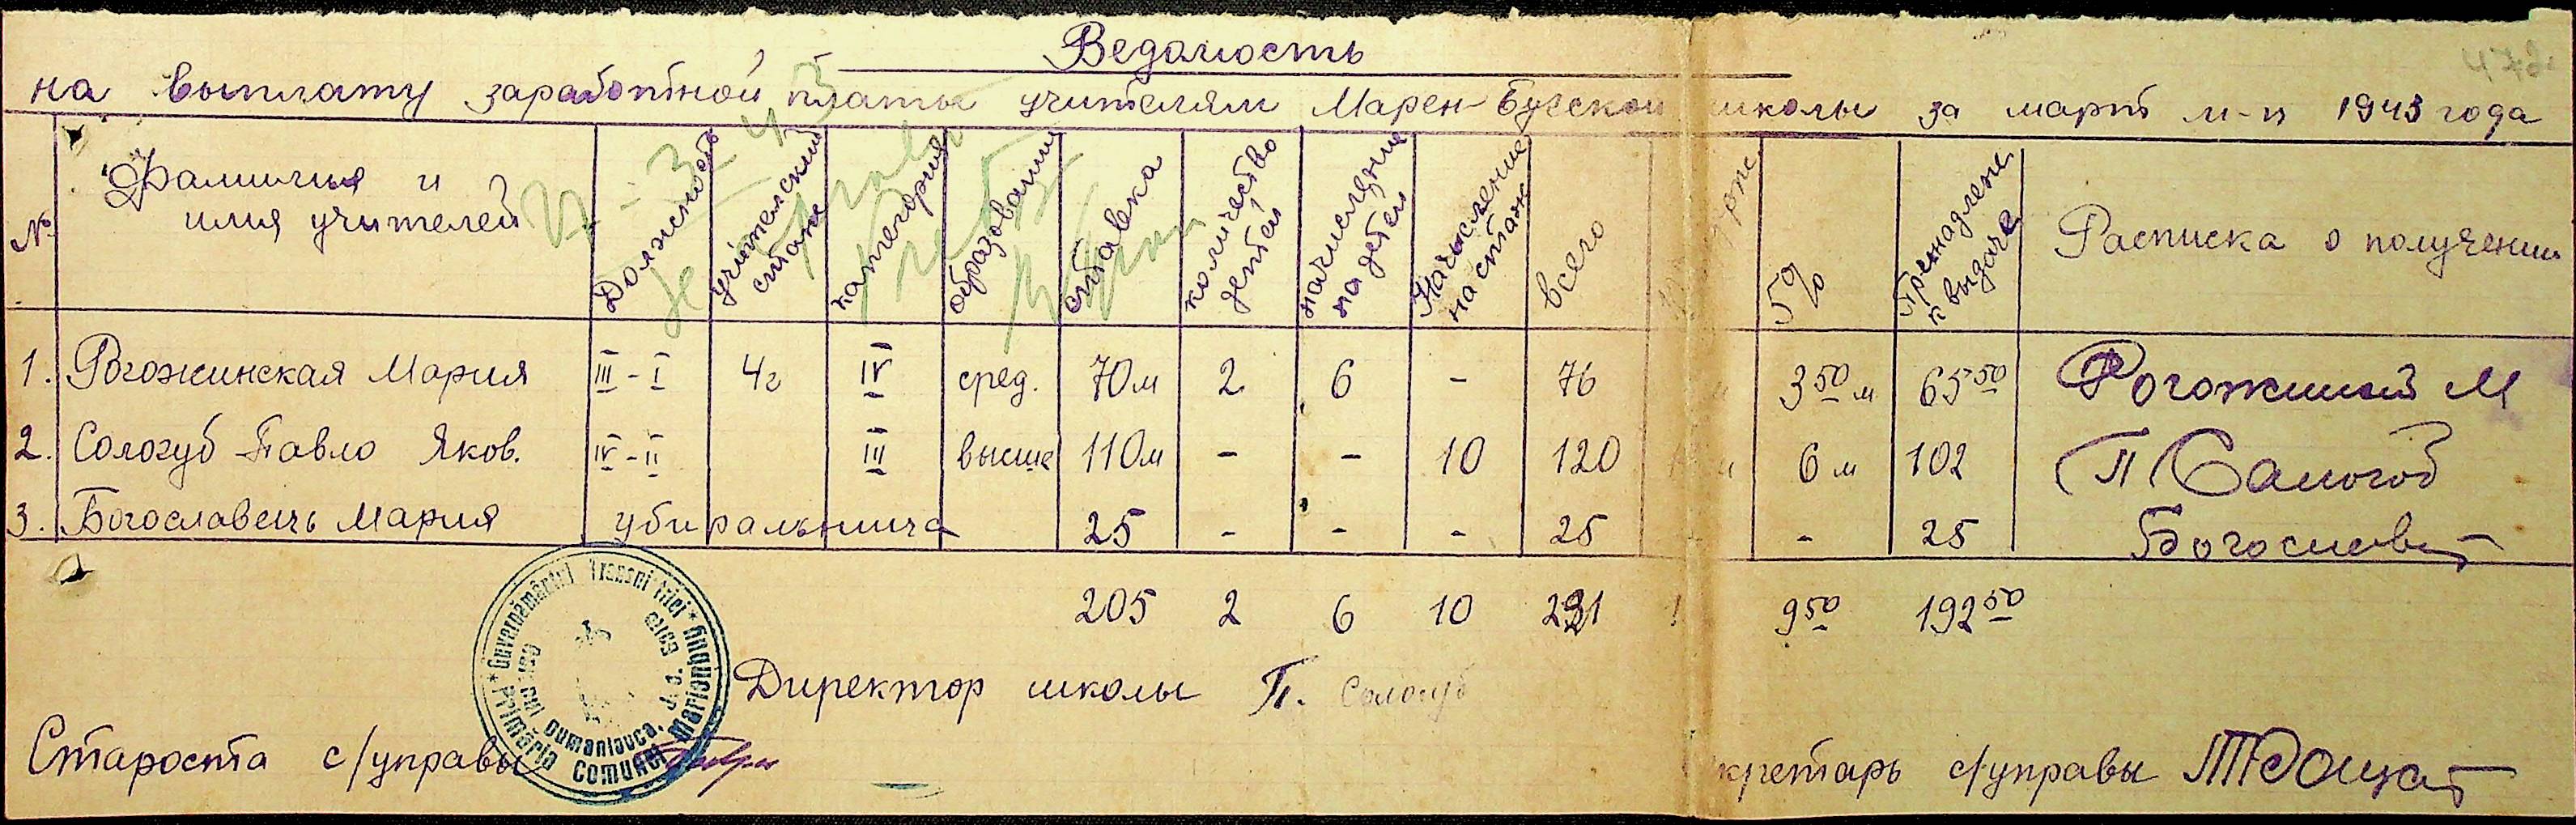 Ведомость
472
на выплату заработной платы учителям Марен-Бугской школы за март м-ц 1943 года
№ Фамилия и имя учителей Должность учительский стаж категория образование ставка количество детей начисление на детей Начисление на стаж всего 5% Пренадлежи к выдаче Расписка о получении
1. Рогожинская Мария III-I 4г IV сред. 70м 2 6 - 76 " 3 50 м 65 50 Рогожинська М
2. Сологуб Павло Яков. IV-II III высше 110м - - 10 120 " 6 м 102 П Сологуб
3. Богославець Мария убиральница 25 - - - 25 - 25 Богославець
205 2 6 10 221 9 50 192 50
Guvernământul Transnistriei
Primăria Comunei
Dumaniauca
Директор школы П. Сологуб
Староста с/управы
кретарь с/управы